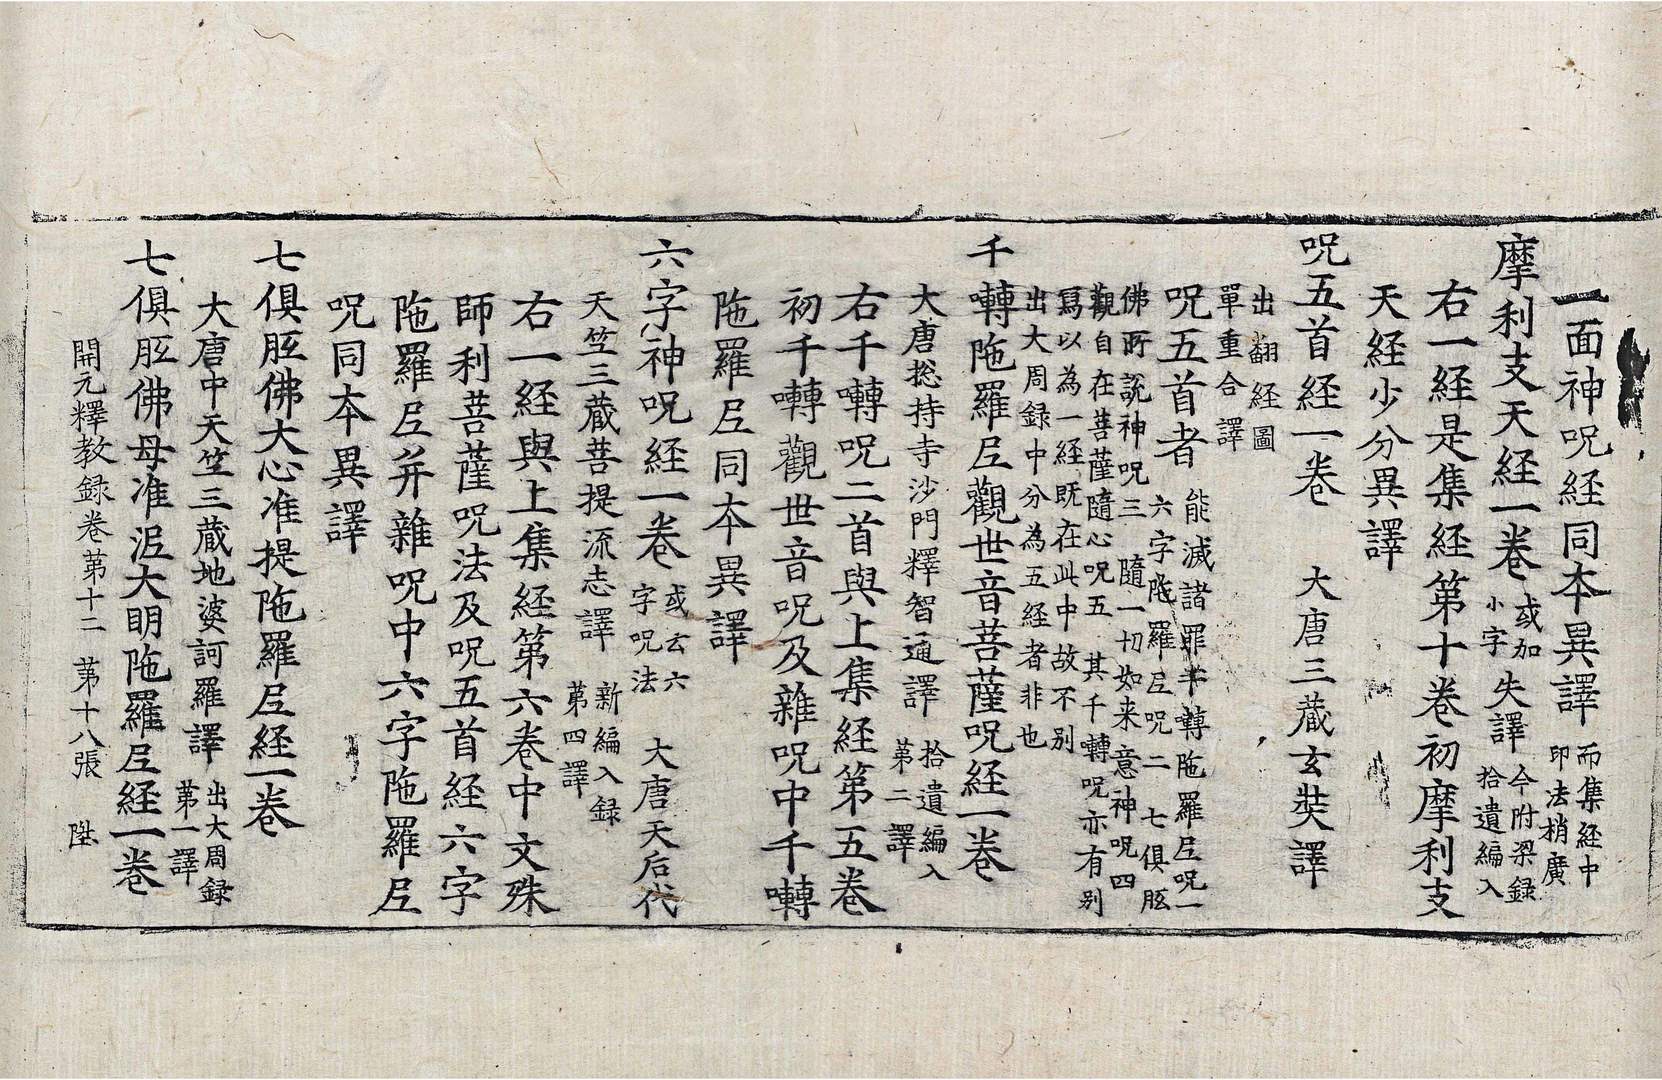 一面神呪經同本異譯 而集經中印法稍廣
摩利支天經一卷 或加小字 失譯 今附梁録拾遺編入
右一經是集經第十卷初摩利支
天經少分異譯
呪五首經一卷 大唐三藏玄奘譯
出翻經圖
單重合譯
呪五首者 能滅諸罪千囀陁羅尼呪一
六字陁羅尼呪二 七俱胝
佛所說神呪三 隨一切如来意神呪四
觀自在菩薩隨心呪五 其千囀呪亦有别
寫以為一經既在此中故不别
出大周録中分為五經者非也
千囀陁羅尼觀世音菩薩呪經一卷
大唐捴持寺沙門釋智通譯 拾遺編入第二譯
右千囀呪二首與上集經第五卷
初千囀觀世音呪及雜呪中千囀
陁羅尼同本異譯
六字神呪經一卷 或云六字呪法 大唐天后代
天竺三藏菩提流志譯 新編入録第四譯
右一經與上集經第六卷中文殊
師利菩薩呪法及呪五首經六字
陁羅尼并雜呪中六字陁羅尼
呪同本異譯
七俱胝佛大心准提陁羅尼經一卷
大唐中天竺三藏地婆訶羅譯 出大周録第一譯
七俱胝佛母准泥大明陁羅尼經一卷
開元釋教録卷第十二 第十八張 陞